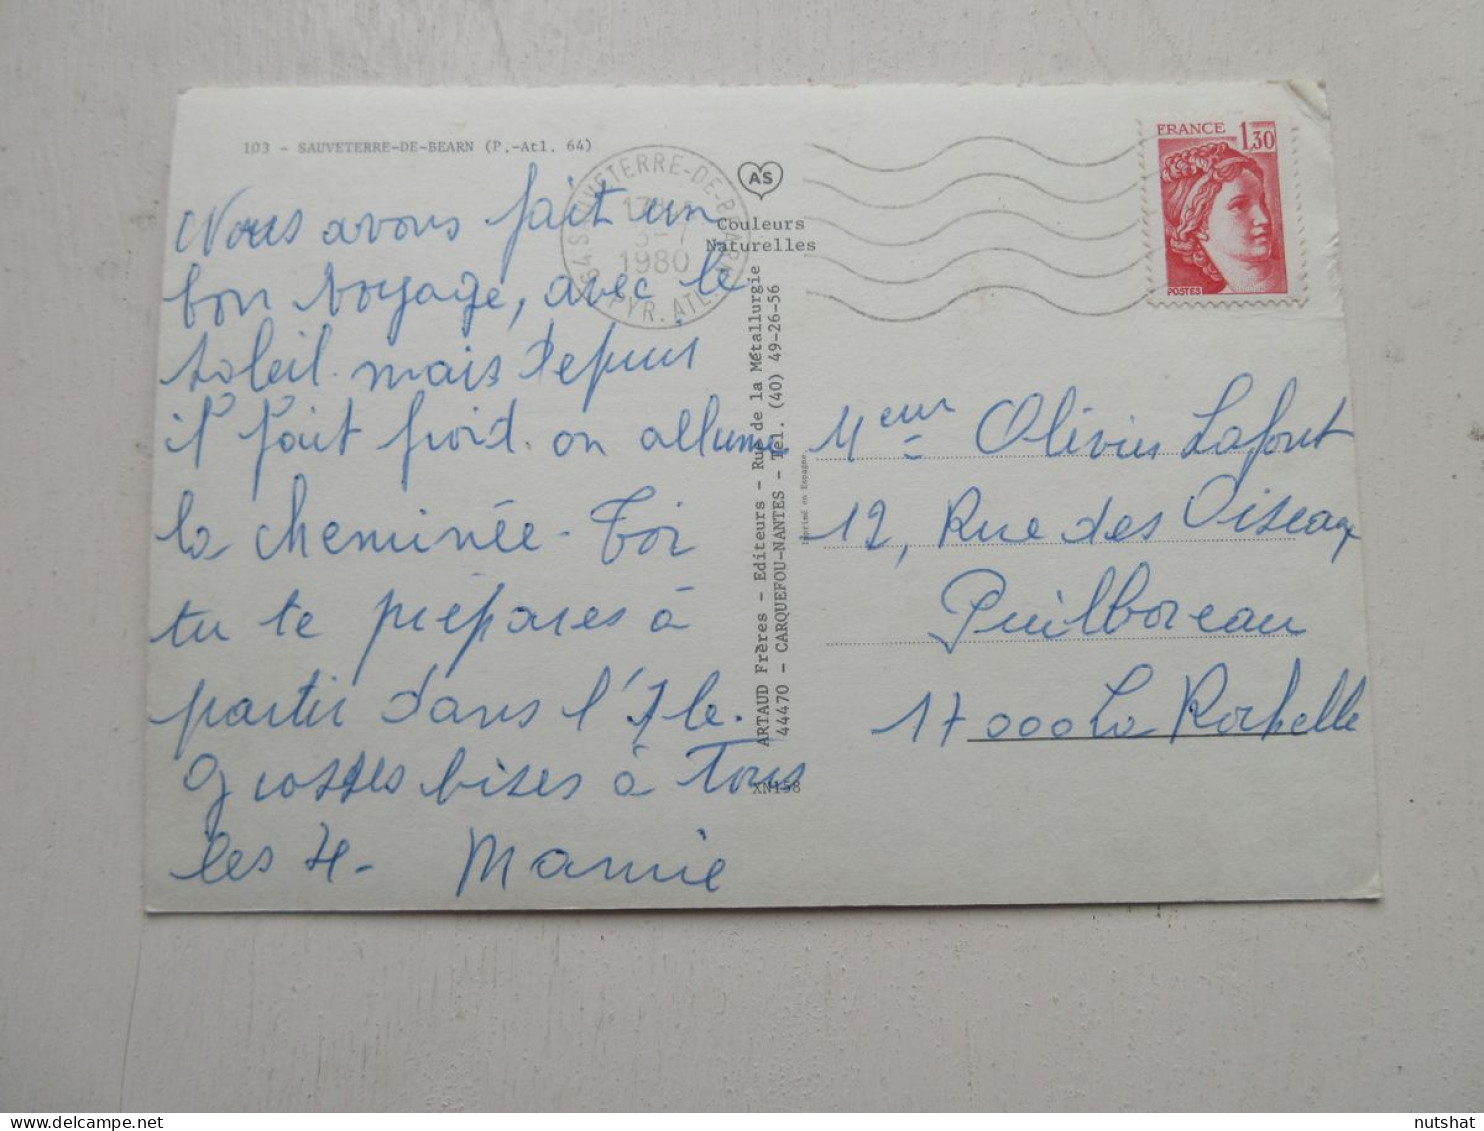 103 - SAUVETERRE-DE-BEARN (P.-Atl. 64)
Nous avons fait un
bon voyage, avec le
soleil. mais depuis
il fait froid. on allume
la cheminée - Toi
tu te prépares à
partir dans l'Ile.
Grosses bises à Tous
les 4. Mamie
64 SAUVETERRE-DE-BEARN
3-7
1980
PYR. ATL.
AS
Couleurs
Naturelles
ARTAUD Frères - Editeurs - Rue de la Métallurgie
44470 - CARQUEFOU-NANTES - Tél. (40) 49-26-56
Imprimé en Espagne.
XN158
FRANCE 1,30
POSTES
Meur Olivier Lafont
12, Rue des Oiseaux
Puilboreau
17000 La Rochelle
nutshat